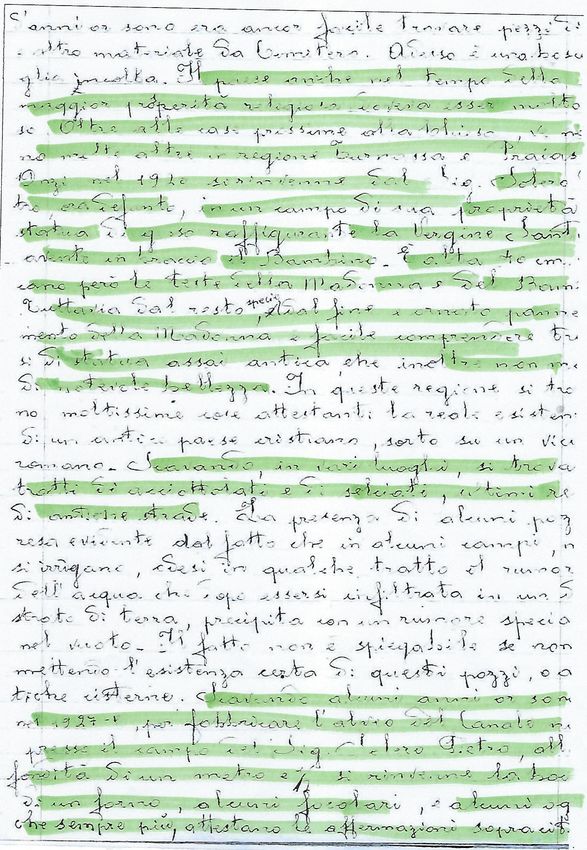 S'anni or sono era ancor facile trovare pezzi di
e altro materiale da Cimitero. Adesso è una bosca
glia incolta. Il paese anche nel tempo della
maggior prosperità religiosa doveva esser molto
se Oltre alle case pressume alla chiesa, ve ne
no molte altre in regione Burnassa e Praias
Anzi nel 1920 si rinvenne dal Sig. Solero
ora defunto, in un campo di sua proprietà
statua di gesso raffigurante la Vergine Santi
avente in braccio il Bambino.
cano però le teste della Madonna e del Bam
Tuttavia dal resto, specie dal fine e ornato panneg
mento della Madonna è facile comprendere tra
si di statua assai antica, che inoltre
di notevole bellezza. In queste regione si tro
no moltissime cose attestanti la reale esisten
di un antico paese cristiano, sorto su un vico
romano. Scavando, in vari luoghi, si trova
tratti di acciottolati e di selciati, ultimi re
di antiche strade. La presenza di alcuni poz
resa evidente dal fatto che in alcuni campi,
si irrigano, odesi in qualche tratto il rumor
dell'acqua che dopo essersi infiltrata in uno
strato di terra, precipita con un rumore specia
nel vuoto. Il fatto non è spiegabile se non
mettendo l'esistenza certa di questi pozzi, o
tiche cisterne. Scavando alcuni anni or sono
nel 1927-V, per fabbricare l'alveo del Canale
presso il campo del Sig. Pietro, all
fondità di un metro e ½ si rinvenne la
di un forno, alcuni focolari, e alcuni og
che sempre più, attestano le affermazioni sopracit